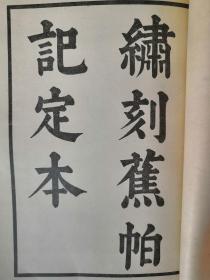 繡刻蕉帕
記定本